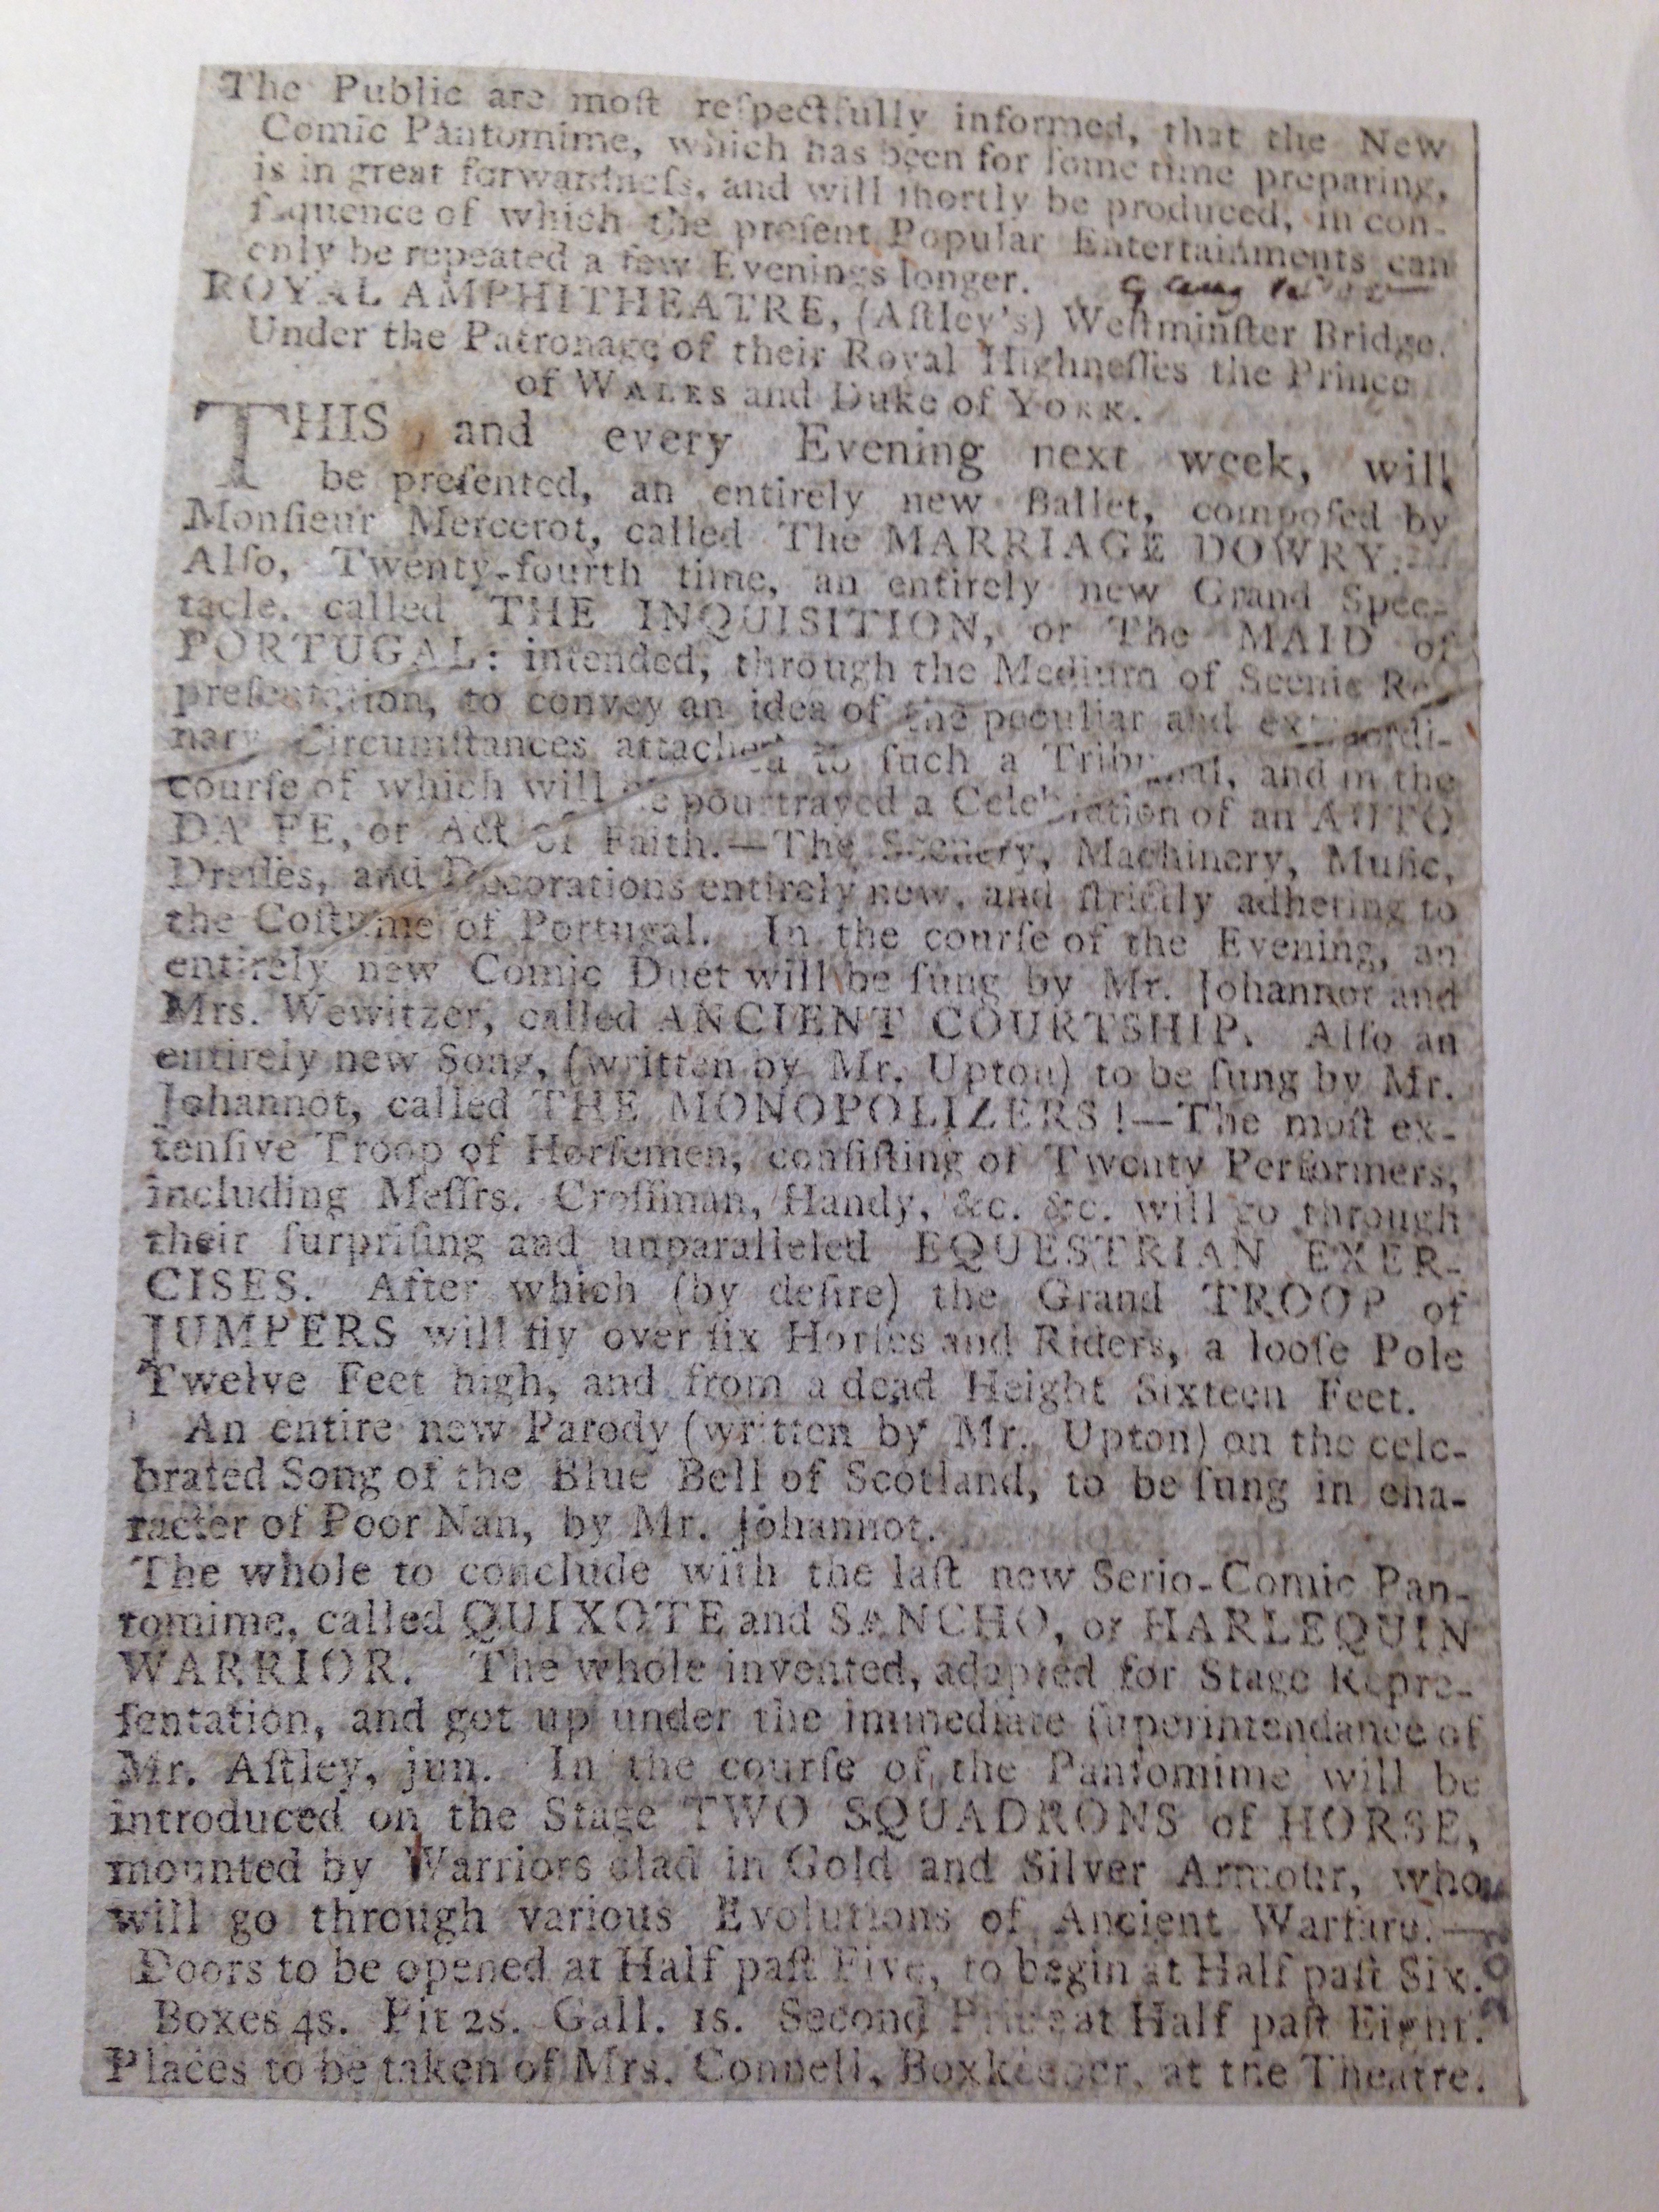 The Public are moſt reſpectfully informed, that the New
Comic Pantomime, which has been for ſome time preparing,
is in great forwardneſs, and will ſhortly be produced, in con-
ſequence of which the preſent Popular Entertainments can
only be repeated a few Evenings longer.
ROYAL AMPHITHEATRE, (Aſtley's) Weſtminſter Bridge.
Under the Patronage of their Royal Highneſſes the Prince
of WALES and Duke of YORK.
THIS, and every Evening next week, will
be preſented, an entirely new Ballet, compoſed by
Monſieur Mercerot, called The MARRIAGE DOWRY.—
Alſo, Twenty-fourth time, an entirely new Grand Spec-
tacle, called THE INQUISITION, or The MAID of
PORTUGAL: intended, through the Medium of Scenic Re-
preſentation, to convey an idea of the peculiar and extraordi-
nary Circumſtances attached to ſuch a Tribunal, and in the
courſe of which will be pourtrayed a Celebration of an AUTO
DA FE, or Act of Faith.—The Scenery, Machinery, Muſic,
Dreſſes, and Decorations entirely new, and ſtrictly adhering to
the Coſtume of Portugal. In the courſe of the Evening, an
entirely new Comic Duet will be ſung by Mr. Johannot and
Mrs. Wewitzer, called ANCIENT COURTSHIP. Alſo an
entirely new Song, (written by Mr. Upton) to be ſung by Mr.
Johannot, called THE MONOPOLIZERS!—The moſt ex-
tenſive Troop of Horſemen, conſiſting of Twenty Performers,
including Meſſrs. Croſſman, Handy, &c. &c. will go through
their ſurpriſing and unparalleled EQUESTRIAN EXER-
CISES. After which (by deſire) the Grand TROOP of
JUMPERS will fly over ſix Horſes and Riders, a looſe Pole
Twelve Feet high, and from a dead Height Sixteen Feet.
An entire new Parody (written by Mr. Upton) on the cele-
brated Song of the Blue Bell of Scotland, to be ſung in cha-
racter of Poor Nan, by Mr. Johannot.
The whole to conclude with the laſt new Serio-Comic Pan-
tomime, called QUIXOTE and SANCHO, or HARLEQUIN
WARRIOR. The whole invented, adapted for Stage Repre-
ſentation, and got up under the immediate ſuperintendance of
Mr. Aſtley, jun. In the courſe of the Pantomime will be
introduced on the Stage TWO SQUADRONS of HORSE,
mounted by Warriors clad in Gold and Silver Armour, who
will go through various Evolutions of Ancient Warfare.—
Doors to be opened at Half paſt Five, to begin at Half paſt Six.
Boxes 4s. Pit 2s. Gall. 1s. Second Price at Half paſt Eight.
Places to be taken of Mrs. Connell, Boxkeeper, at the Theatre.